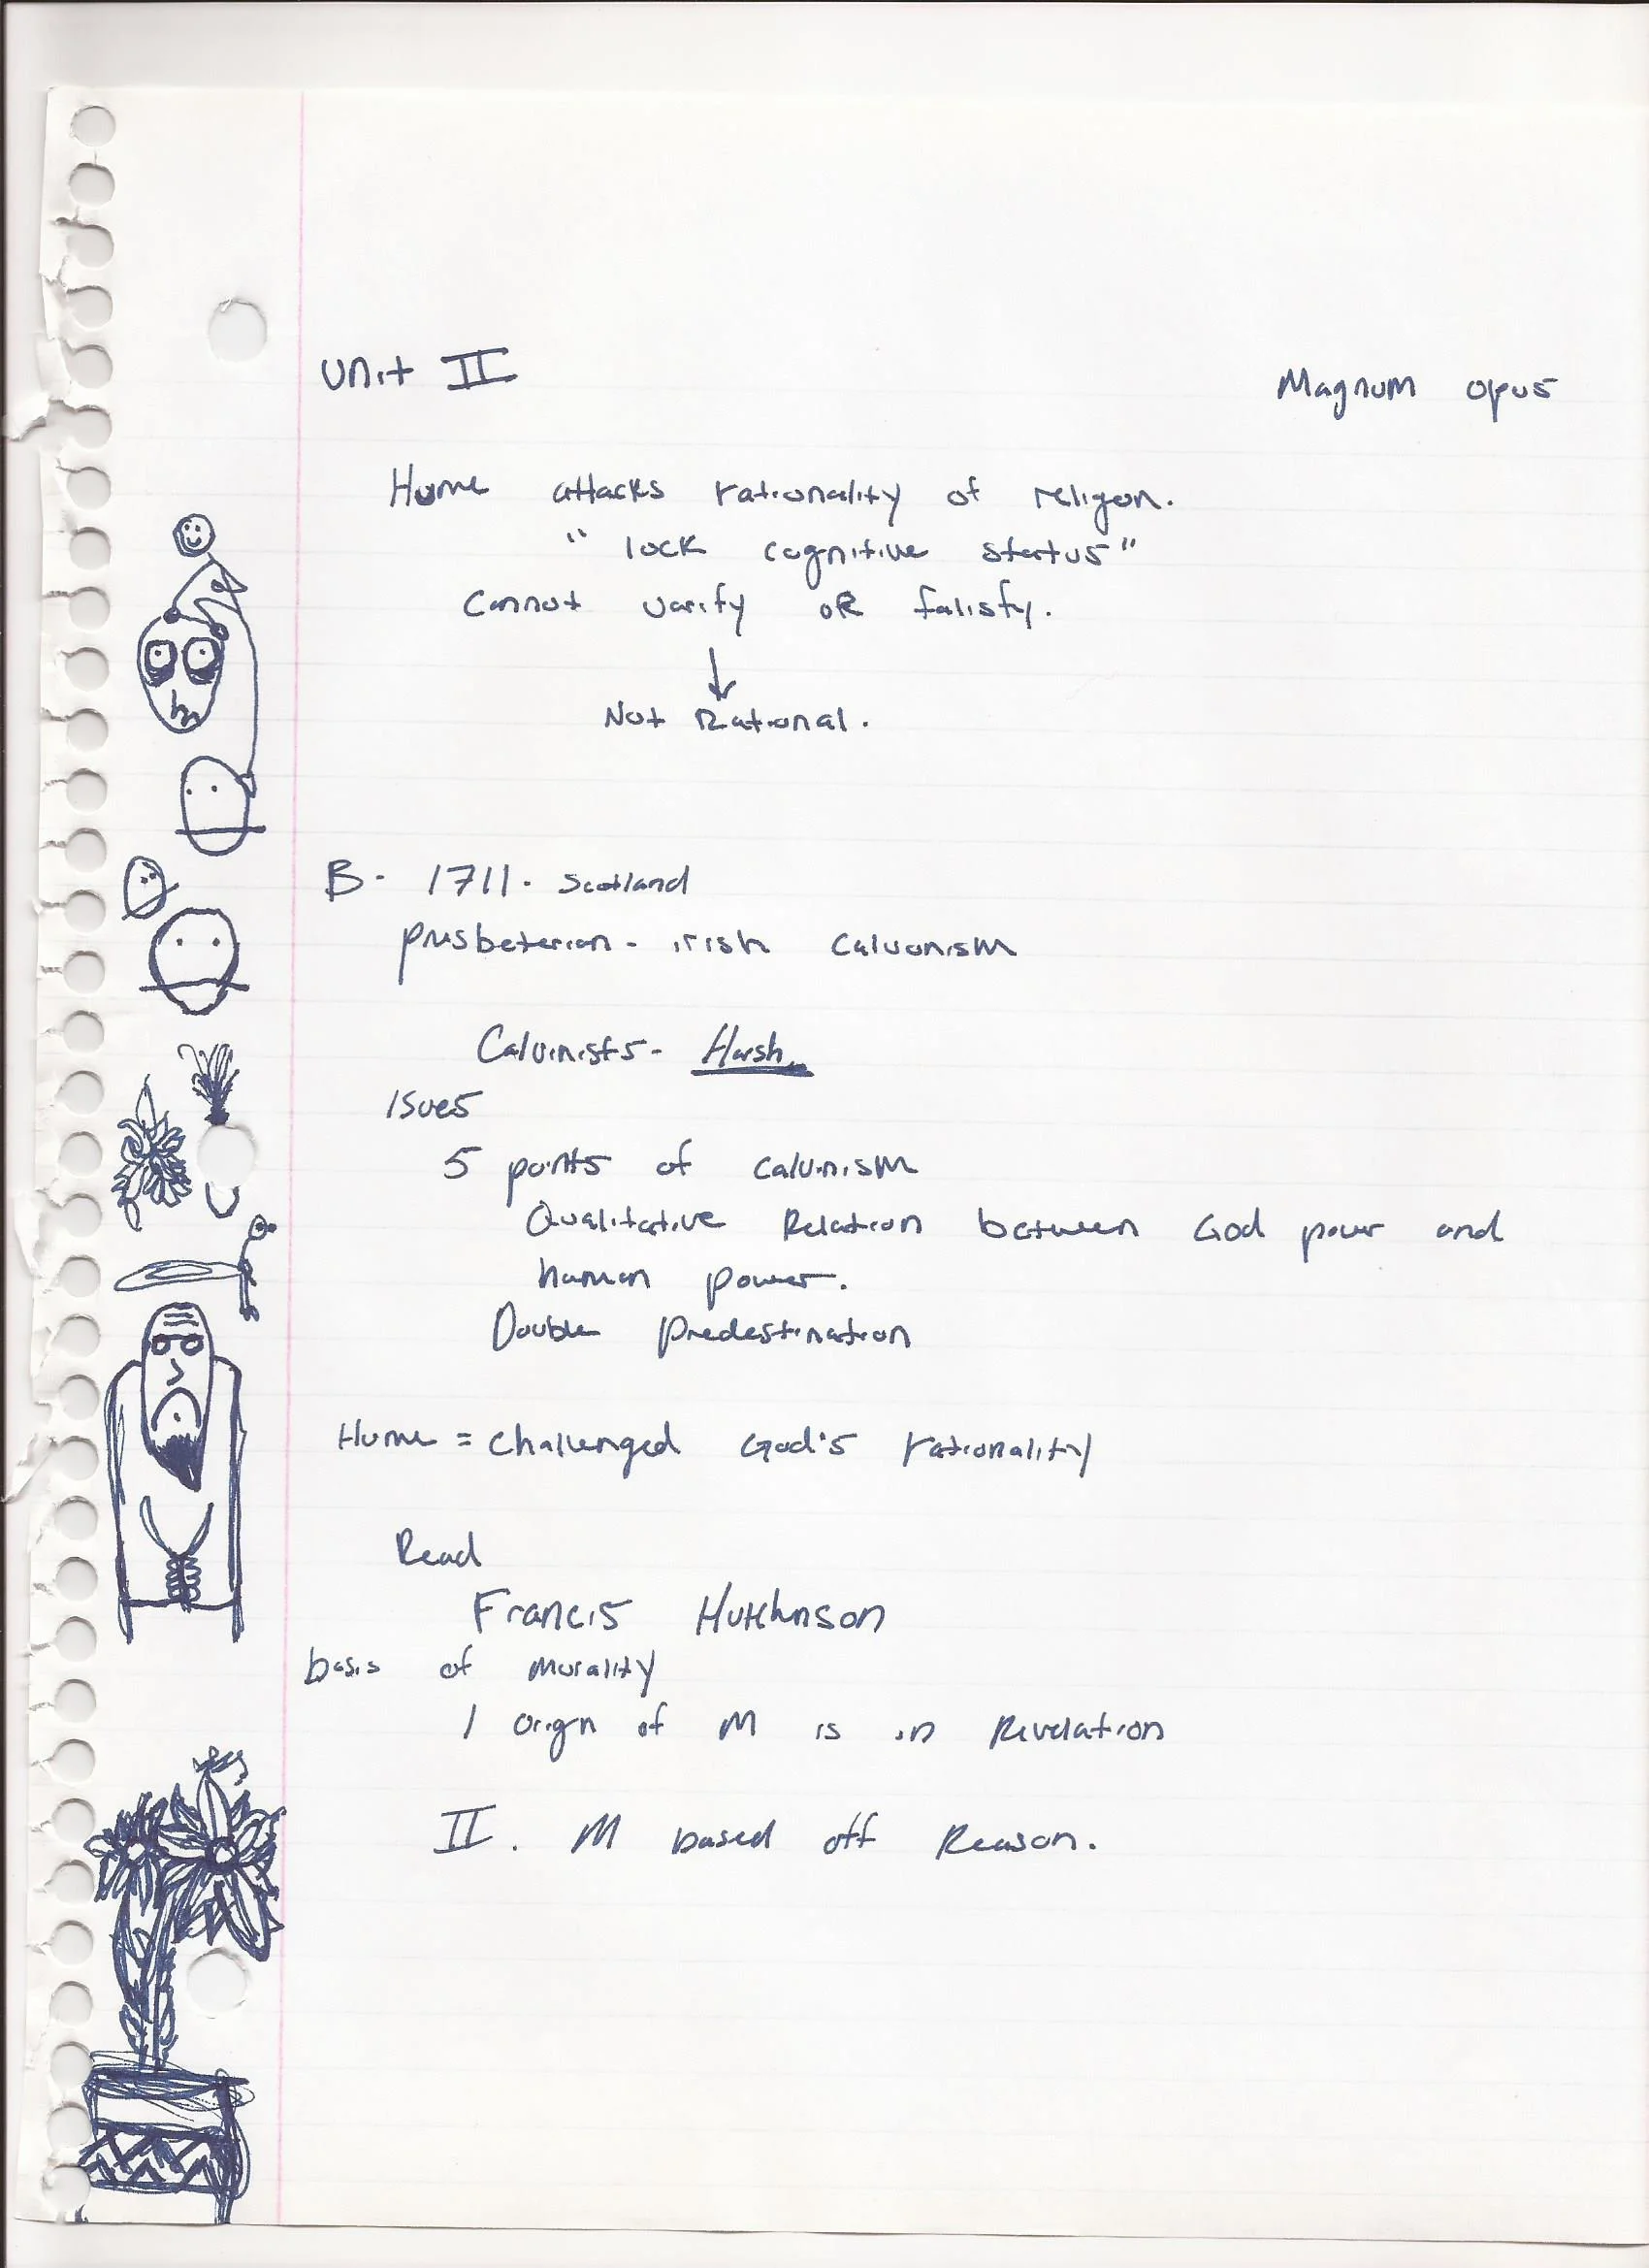 Unit II
Magnum opus
Hume attacks rationality of religon.
" lack cognitive status"
Cannot varify or falisfy.
Not Rational.
B- 1711. Scotland
presbeterian - irish calvonism
Calvinists - Harsh
Isues
5 points of calvinism
Qualitative Relation between God power and
human power.
Double predestination
Hume = challenged God's rationality
Read
Francis Hutchinson
basis of morality
1 orign of M is in Revelation
II. M based off Reason.